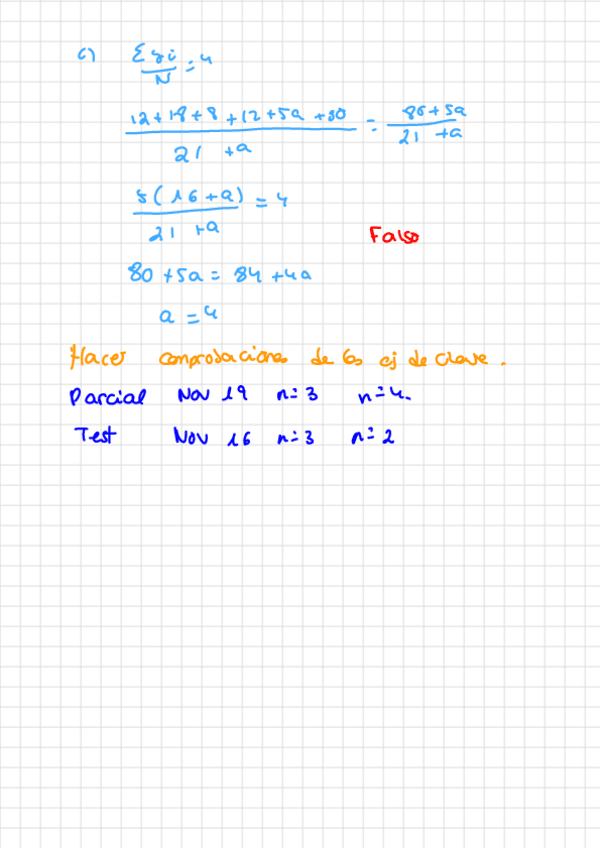 c) Σyi/N = 4
(12+18+8+12+5a+30)/(21+a) = (80+5a)/(21+a)
5(16+a)/(21+a) = 4
Falso
80+5a = 84+4a
a = 4
Hacer comprobaciones de los ej de clase.
Parcial Nov 19 n=3 n=4.
Test Nov 16 n=3 n=2